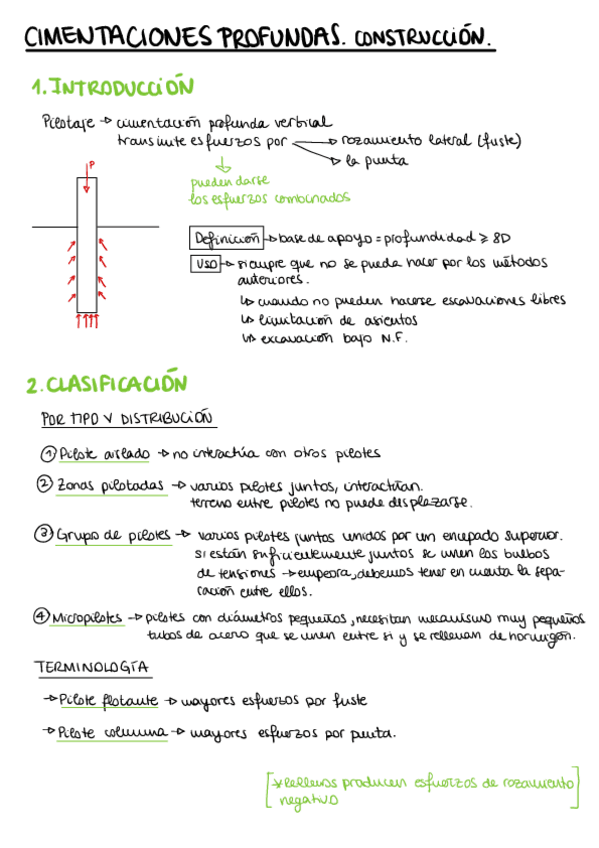 CIMENTACIONES PROFUNDAS. CONSTRUCCIÓN.
1. INTRODUCCIÓN
Pilotaje → cimentación profunda vertical
transmite esfuerzos por → rozamiento lateral (fuste)
→ la punta
pueden darse
los esfuerzos combinados
P
Definición → base de apoyo = profundidad ≥ 8D
USO → siempre que no se pueda hacer por los métodos
anteriores.
↳ cuando no pueden hacerse excavaciones libres
↳ limitación de asientos
↳ excavación bajo N.F.
2. CLASIFICACIÓN
POR TIPO Y DISTRIBUCIÓN
① Pilote aislado → no interactúa con otros pilotes
② Zonas pilotadas → varios pilotes juntos, interactúan.
terreno entre pilotes no puede desplazarse.
③ Grupo de pilotes → varios pilotes juntos unidos por un encepado superior.
si están suficientemente juntos se unen los bulbos
de tensiones → empeora, debemos tener en cuenta la sepa-
ración entre ellos.
④ Micropilotes → pilotes con diámetros pequeños, necesitan mecanismo muy pequeños
tubos de acero que se unen entre si y se rellenan de hormigón.
TERMINOLOGÍA
→ Pilote flotante → mayores esfuerzos por fuste
→ Pilote columna → mayores esfuerzos por punta.
* Rellenos producen esfuerzos de rozamiento
negativo